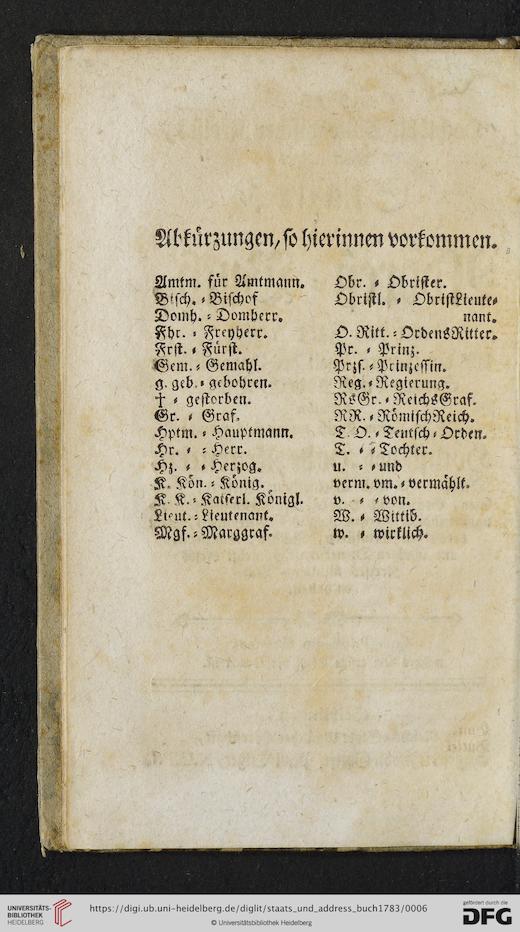 Abkürzungen, so hierinnen vorkommen.
Amtm. für Amtmann.
Bisch. = Bischof
Domh. = Domherr.
Fhr. = Freyherr.
Frst. = Fürst.
Gem. = Gemahl.
g. geb. = gebohren.
† = gestorben.
Gr. = Graf.
Hptm. = Hauptmann.
Hr. = = Herr.
Hz. = = Herzog.
K. Kön. = König.
K. K. = Kaiserl. Königl.
Lieut. = Lieutenant.
Mgf. = Marggraf.
Obr. = Obrister.
Obristl. = ObristLieute=
nant.
O. Ritt. = OrdensRitter.
Pr. = Prinz.
Przs. = Prinzessin.
Reg. = Regierung.
RsGr. = ReichsGraf.
RR. = RömischReich.
T. O. = Teutsch = Orden.
T. = = Tochter.
u. = = und
verm. vm. = vermählt.
v. = = von.
W. = Wittib.
w. = wirklich.
UNIVERSITÄTS-
BIBLIOTHEK
HEIDELBERG
https://digi.ub.uni-heidelberg.de/diglit/staats_und_address_buch1783/0006
© Universitätsbibliothek Heidelberg
gefördert durch die
DFG